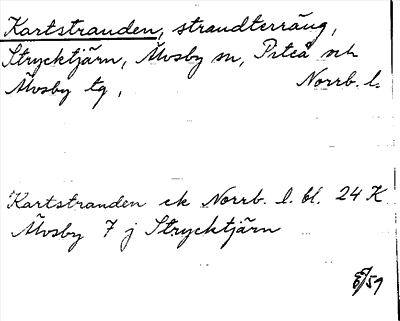 Kartstranden, strandterräng,
Strycktjärn, Älvsby sn, Piteå nh
Älvsby tg, Norrb. l.
Kartstranden ek Norrb. l. bl. 24 K
Älvsby 7 j Strycktjärn